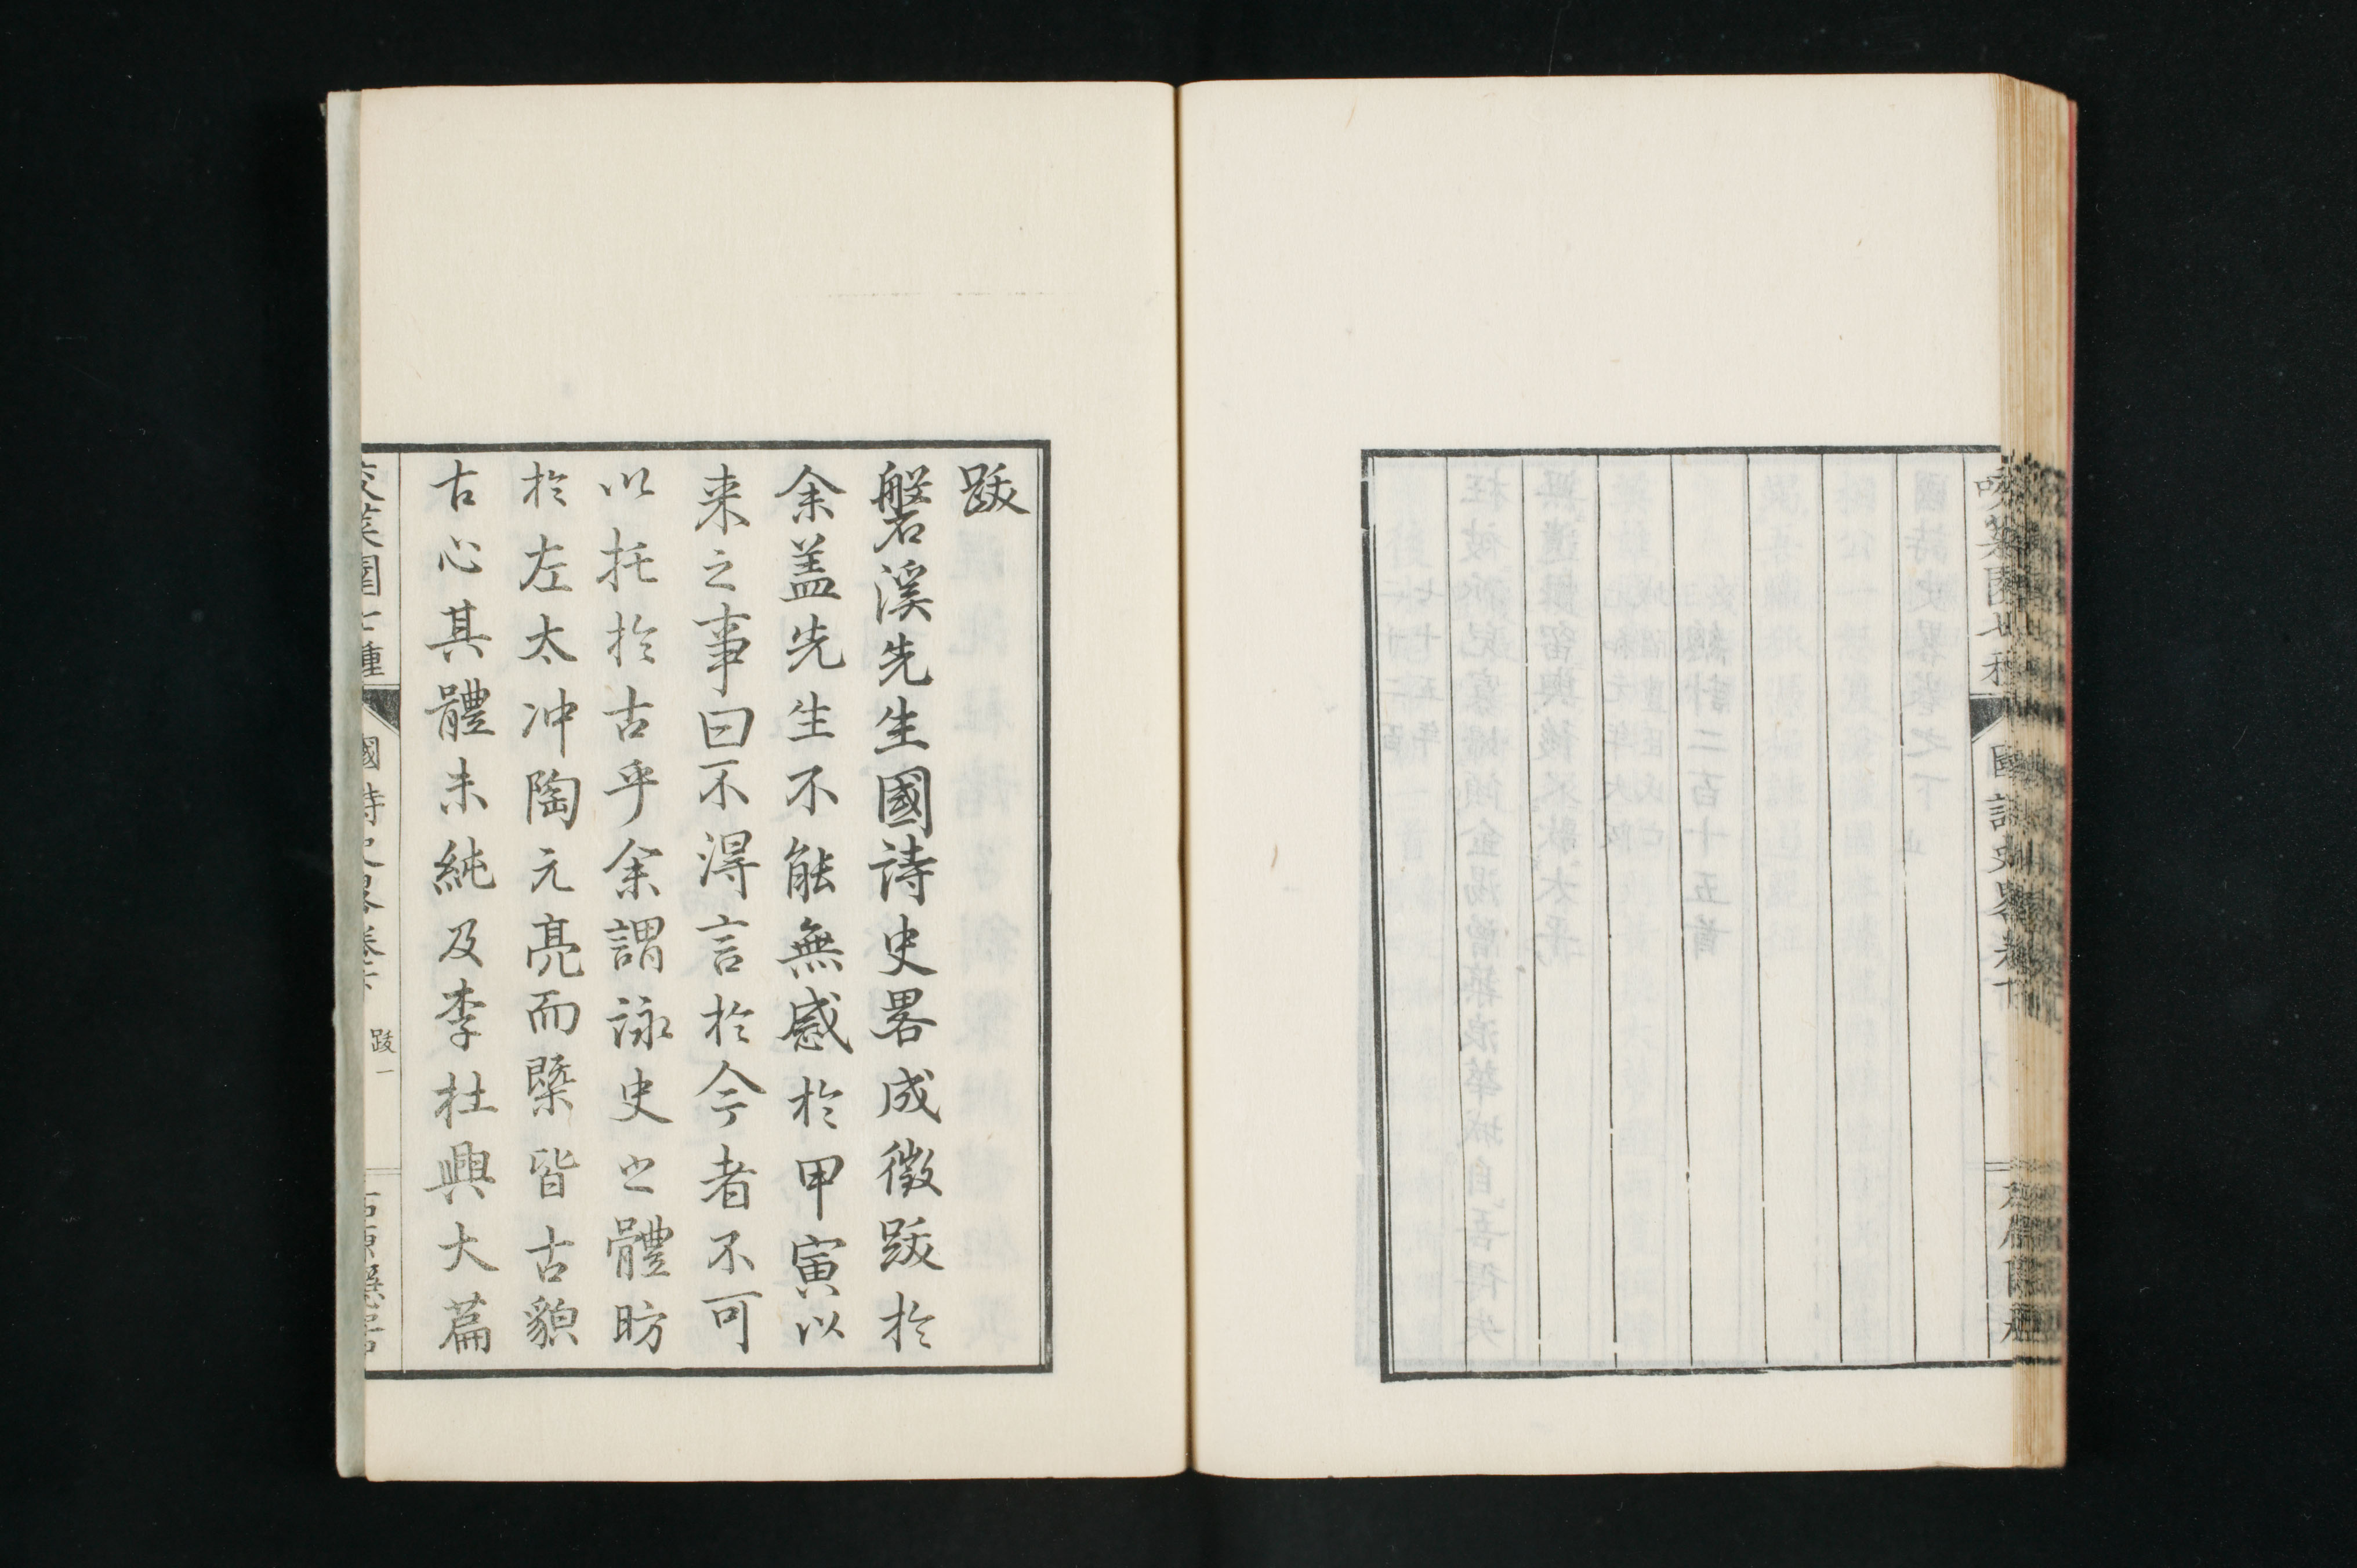 跋
磐溪先生國詩史畧成徵跋於
余盖先生不能無感於甲寅以
来之事曰不得言於今者不可
以托於古乎余謂詠史之體昉
於左太冲陶元亮而槩皆古貌
古心其體未純及李杜興大篇
國詩史畧卷下
跋一
國詩史畧卷下